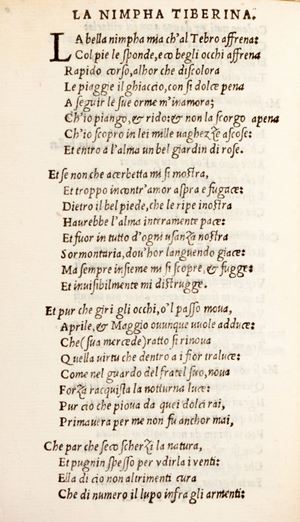 LA NIMPHA TIBERINA.
LA bella nimpha mia ch'al Tebro affrena:
Col pie le sponde, e co begli occhi affrena
Rapido corso, alhor che discolora
Le piaggie il ghiaccio, con si dolce pena
A seguir le sue orme m'inamora;
Ch'io piango, & rido: & non la scorgo apena
Ch'io scopro in lei mille vaghezze ascose:
Et entro a l'alma un bel giardin di rose.
Et se non che acerbetta mi si mostra,
Et troppo incontr'amor aspra e fugace:
Dietro il bel piede, che le ripe inostra
Haurebbe l'alma interamente pace:
Et fuor in tutto d'ogni usanza nostra
Sormontaria, dou'hor languendo giace:
Ma sempre insieme mi si scopre, & fugge:
Et inuisibilmente mi distrugge.
Et pur che giri gli occhi, o'l passo moua,
Aprile, & Maggio ouunque uuole adduce:
Che (sua mercede) ratto si rinoua
Quella virtu che dentro a i fior traluce:
Come nel guardo del fratel suo, noua
Forza racquista la notturna luce:
Pur cio che pioua da quei dolci rai,
Primauera per me non fu anchor mai,
Che par che seco scherzi la natura,
Et pugnin spesso per vdirla i venti:
Ella di cio non altrimenti cura
Che di numero il lupo infra gli armenti: